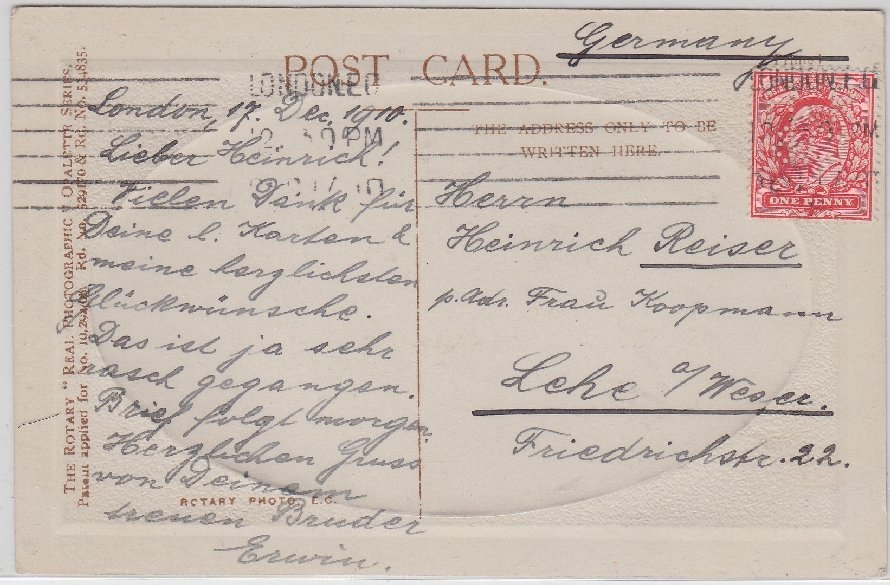 Germany
POST CARD.
LONDON.E.C
London, 17. Dec. 1910.
Lieber Heinrich!
Vielen Dank für
Deine l. Karten &
meine herzlichsten
Glückwünsche.
Das ist ja sehr
rasch gegangen.
Brief folgt morgen.
Herzlichen Gruss
von Deinem
treuen Bruder
Erwin.
THE ADDRESS ONLY TO BE
WRITTEN HERE.
Herrn
Heinrich Reiser
p. Adr. Frau Koopmann
Lehe a/Weser.
Friedrichstr. 22.
ONE PENNY
LONDON.E.C
PM
THE ROTARY "REAL PHOTOGRAPHIC" OPALETTE SERIES.
Patent applied for No. Rd. No. & Rd. No.
ROTARY PHOTO, E.C.